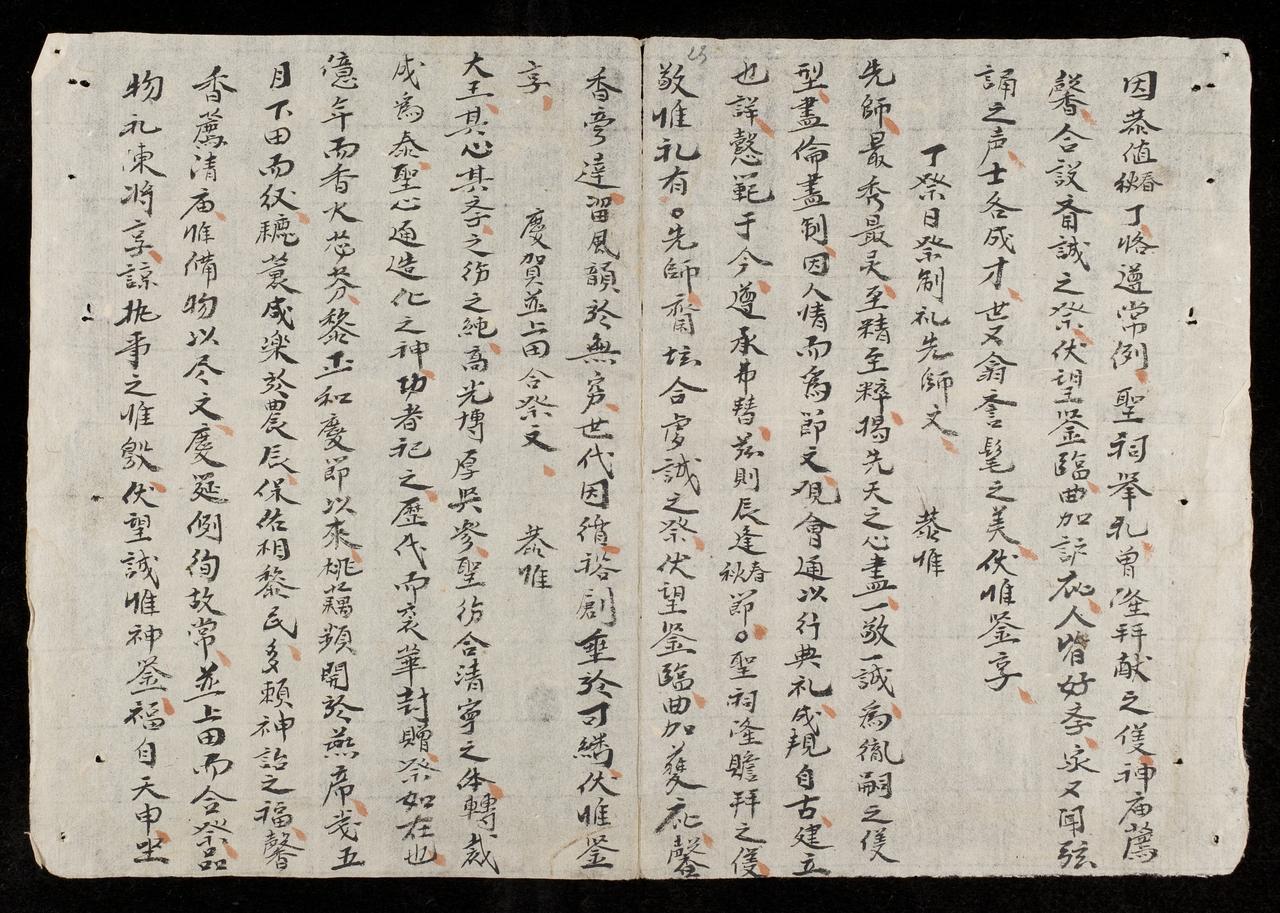 因恭值春秋丁恪遵常例聖祠举礼曾隆拜献之仪神庙薦
馨合設斎誠之祭伏望鉴臨曲加訴庇人皆好孝家又闻弦
誦之声士各成才世又翕誉髦之美伏惟鉴享
丁祭日祭制礼先師文 恭惟
先師最秀最灵至精至粹揭先天之心盡一敬一誠為亂嗣之
型盡倫盡制因人情而為節文观會通以行典礼成規自古建立
也詳懿範于今遵承弗替茲則辰逢春秋節○聖祠隆瞻拜之
敬惟礼有○先師齋坛合虔誠之祭伏望鉴臨曲加護庇馨
香旁達畄風韻於無穷世代因循裕創垂於可繙伏惟鉴
享 慶賀並上田合祭文 恭惟
大王其心其之子之彷之純高光博厚吳參聖彷合清寧之体轉裁
成為泰聖心通造化之神功者祀之歷代而衮華封贈祭如在也
億年而香火苾芬黎正和慶節以來桃藕頻開於燕席幾五
月下田而秋穮蓘咸楽於農辰保佑相黎民多賴神詒之福馨
香薦清庙惟備物以尽文慶筵例徇故常並上田而合祭品
物礼陳将享諒执事之惟敫伏望誠惟神鉴福自天申坐